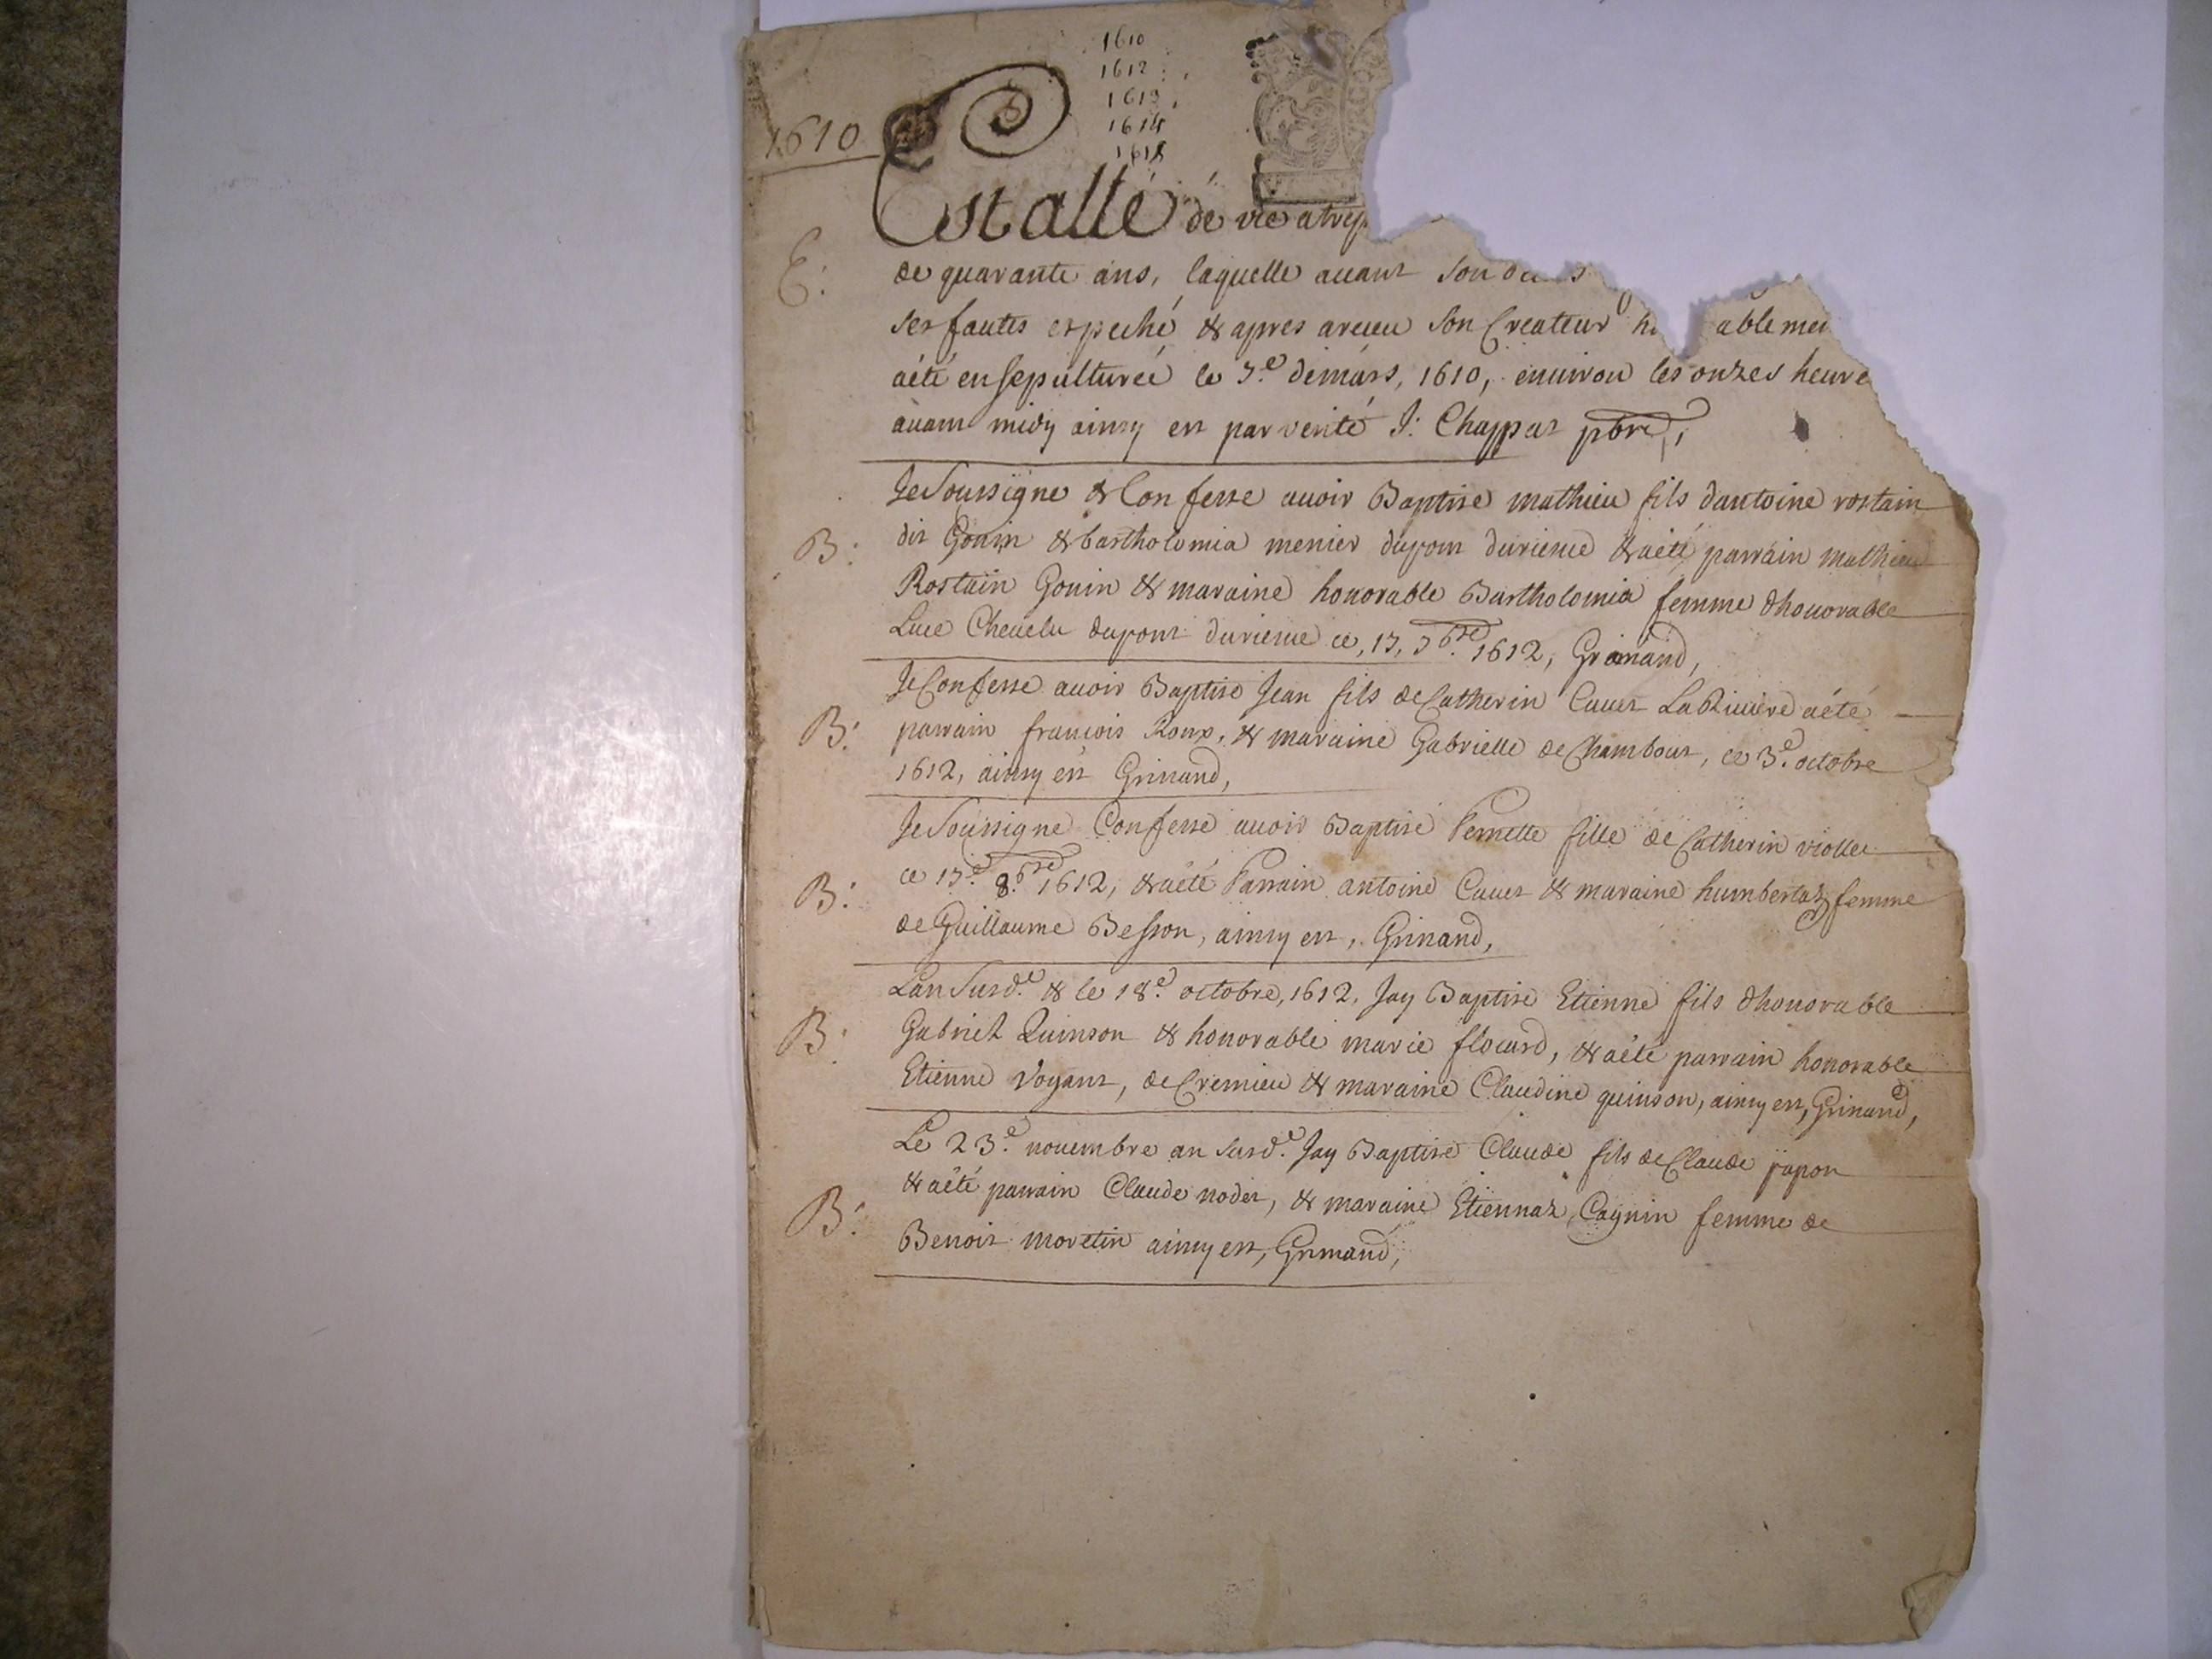 1610
1612
1613
1614
1615
1610
Est allé de vie a trep
E: de quarante ans, laquelle auant son de s
ses fautes et peché & apres auoir receu son Createur h ablemen
aété ensepulturée le 7.e de mars, 1610, enuiron les onzes heure
auant midy ainsy est par verité J: Chappat pbre,
Je Soussigne & Confesse auoir Baptise mathieu fils dantoine rostain
B: dit Gonin & bartholomia menier dupont durieme & aété parrain mathieu
Rostain Gonin & maraine honorable Bartholomia femme dhonorable
Luce Cheuelu dupont durieme ce, 17, 7bre 1612, Grinand,
Je Confesse auoir Baptise Jean fils de Catherin Cauet La Riuiere aété
B: parrain francois Roux, & maraine Gabrielle de Chambour, ce 3.e octobre
1612, ainsy est Grinand,
Je Soussigne Confesse auoir Baptisé Pernette fille de Catherin viollet
B: ce 17.e 8.bre 1612, & aété Parrain antoine Cauet & maraine humbertaz femme
de Guillaume Besson, ainsy est, Grinand,
Lan Susd.e & le 18.e octobre, 1612, Jay Baptise Etienne fils dhonorable
B: Gabriel Quinson & honorable marie flocard, & aété parrain honorable
Etienne Voyant, de Cremieu & maraine Claudine quinson, ainsy est, Grinand,
Le 23.e nouembre an Susd.e Jay Baptise Claude fils de Claude papon
B: & aété parrain Claude nodet, & maraine Etiennaz Cagnin femme de
Benoit moretin ainsy est, Grinand,